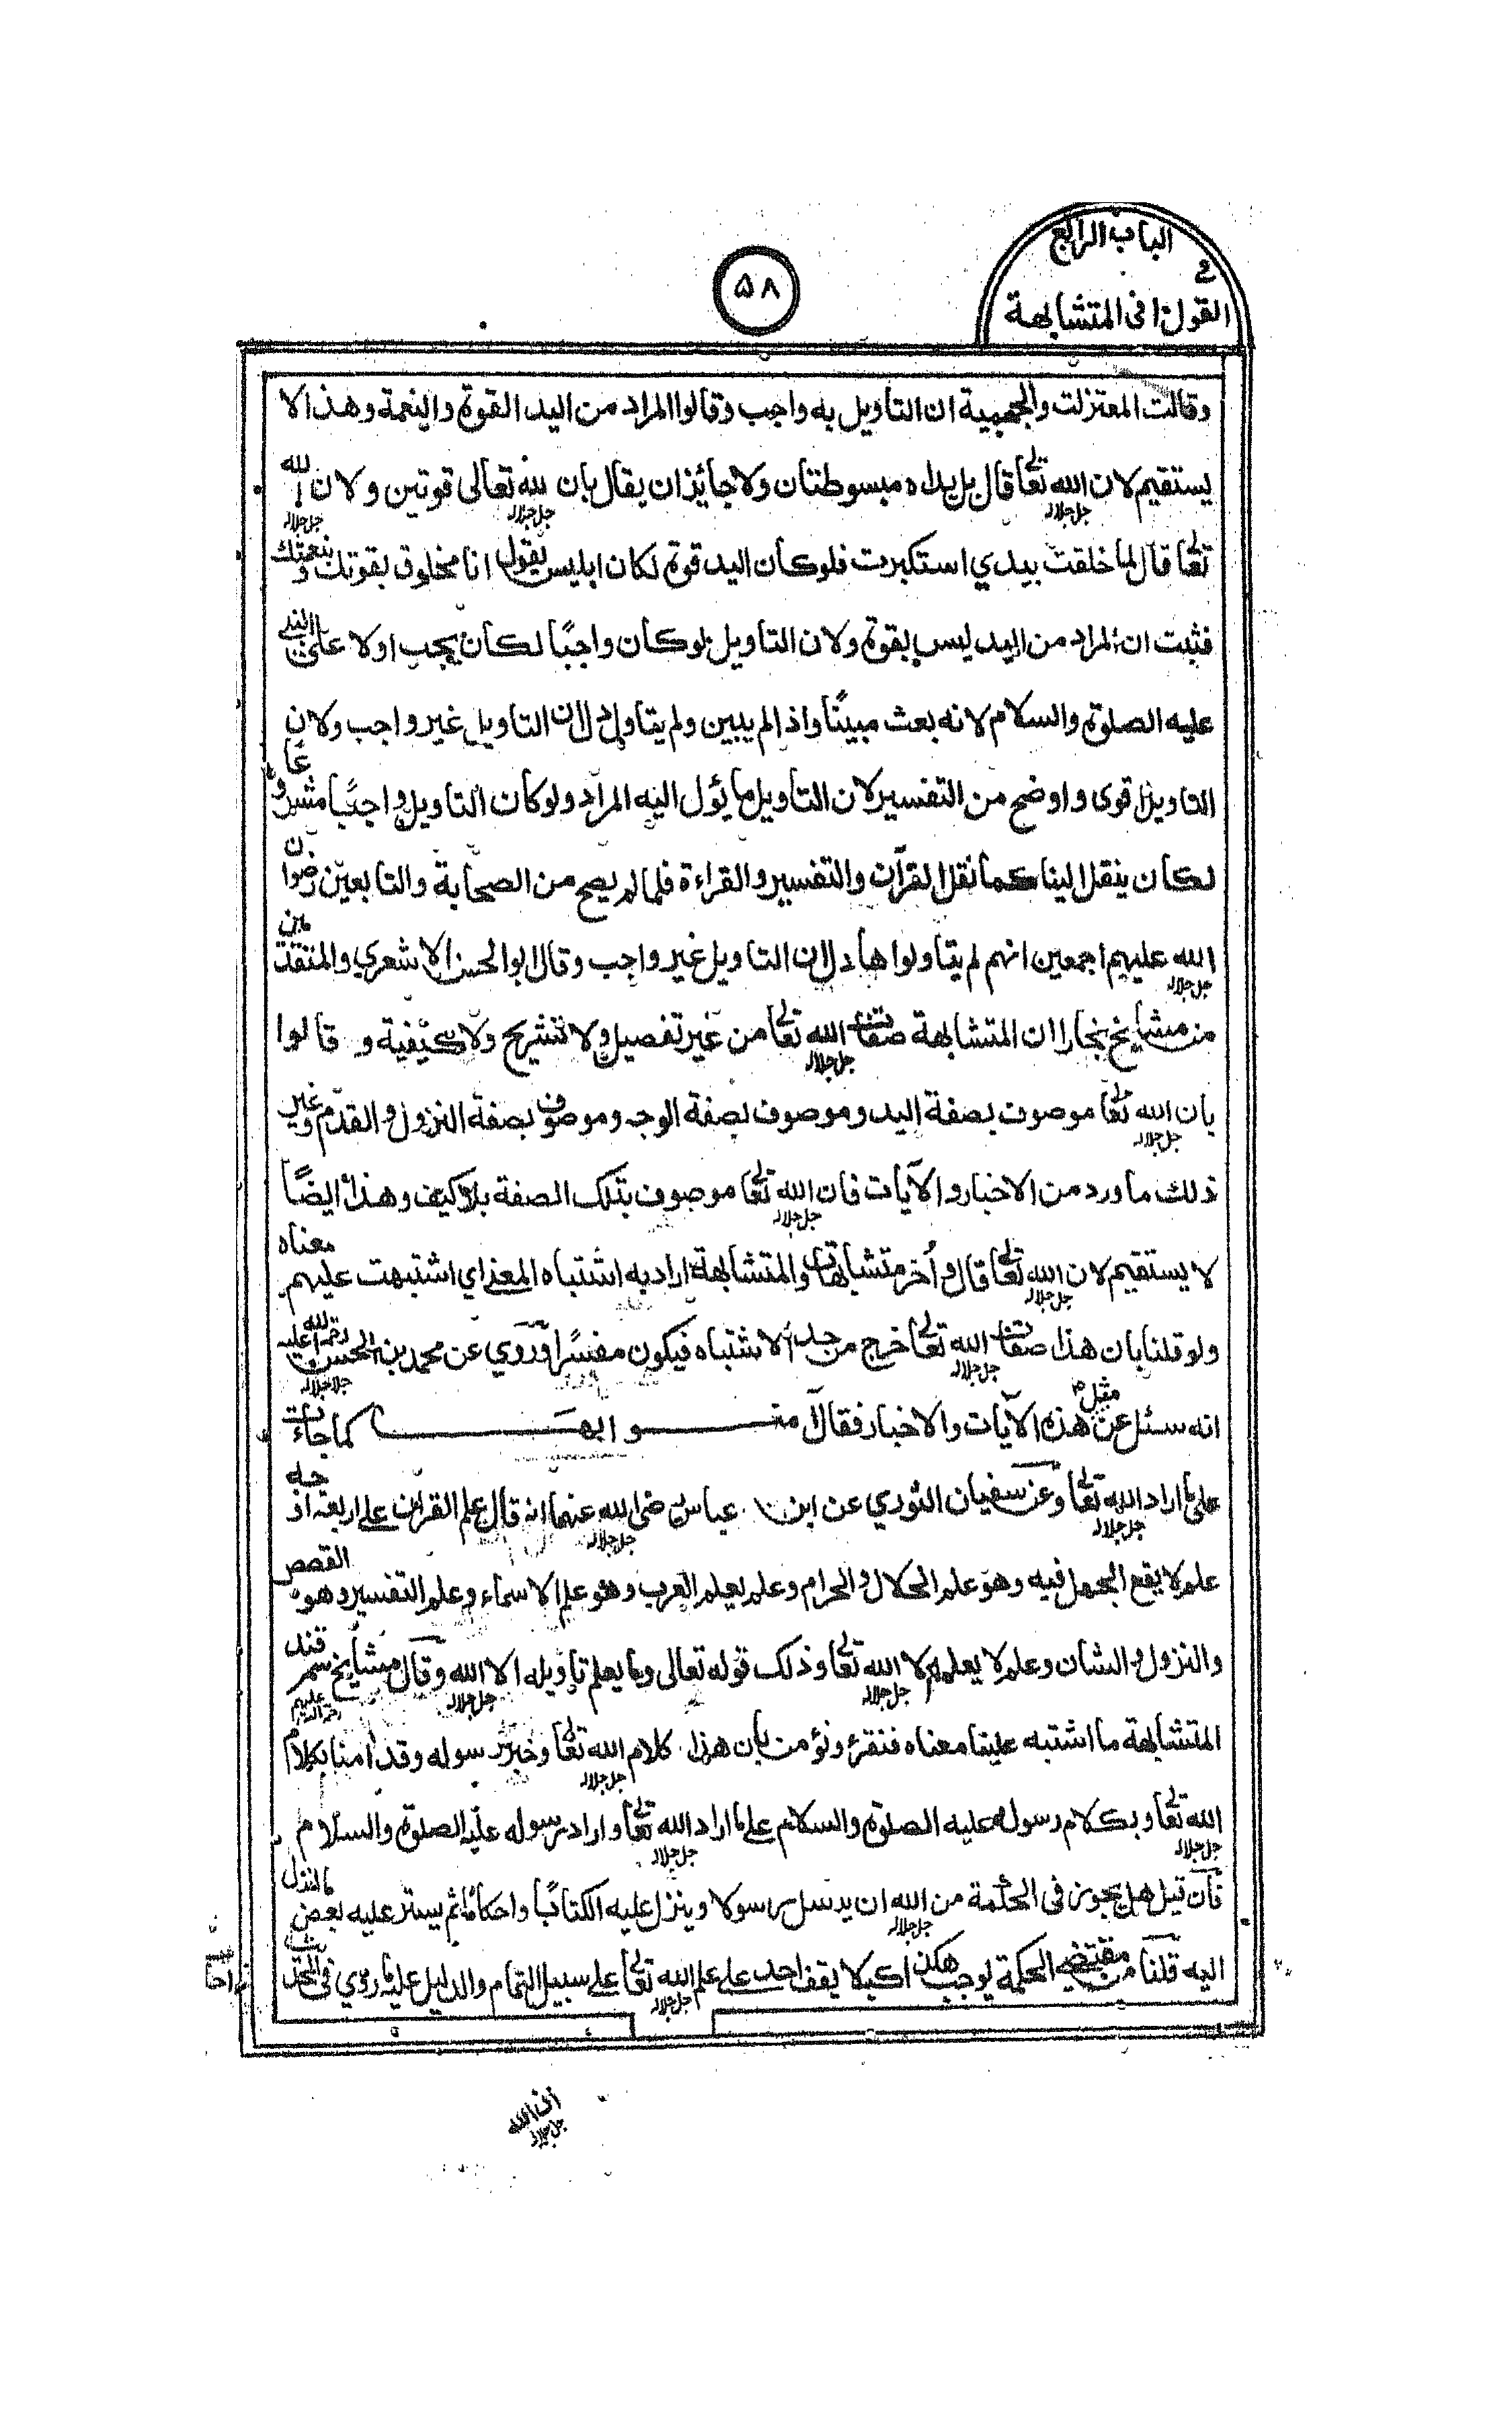 الباب الرابع
في
القول فى المتشابهة
۵۸
وقالت المعتزلة والجهمية ان التاويل به واجب وقالوا المراد من اليد القوة والنعمة وهذا لا
يستقيم لان الله تعالى جل جلاله قال بل يداه مبسوطتان ولا جايز ان يقال بان لله تعالى جل جلاله قوتين ولان الله جل جلاله
تعالى قال لما خلقت بيدي استكبرت فلو كان اليد قوة لكان ابليس يقول انا مخلوق بقوتك ونعمتك
فثبت ان المراد من اليد ليس بقوة ولان التاويل لوكان واجبًا لكان يجب اولا على النبي
عليه الصلوة والسلام لانه بعث مبينًا واذا لم يبين ولم يتاول دل ان التاويل غير واجب ولان
التاويل اقوى واوضح من التفسير لان التاويل ما يؤل اليه المراد ولوكان التاويل واجبًا مشروعا
لكان ينقل الينا كما نقل القرآن والتفسير والقراءة فلما لم يصح من الصحابة والتابعين رضوان
الله جل جلاله عليهم اجمعين انهم لم يتاولوا هادل ان التاويل غير واجب وقال ابوالحسن الاشعري والمتقدمين
من مشايخ بخارا ان المتشابهة صفات الله تعالى جل جلاله من غير تفصيل ولا تشريح ولا كيفية و قالوا
بان الله تعالى جل جلاله موصوف بصفة اليد وموصوف بصفة الوجه وموصوف بصفة النزول والقدم وغير
ذلك ما ورد من الاخبار والآيات فان الله تعالى جل جلاله موصوف بتلك الصفة بلا كيف وهذا ايضًا
لا يستقيم لان الله تعالى جل جلاله قال وأخر متشابهات والمتشابهة اراد به اشتباه المعنى اي اشتبهت عليهم معناه
ولو قلنا بان هذا صفات الله تعالى جل جلاله خرج من حد الاشتباه فيكون مفسرًا وروي عن محمد بن الحسن رحمة الله عليه جل جلاله
انه سئل عن مثل هذه الآيات والاخبار فقال كما جاءت
على ما اراد الله تعالى جل جلاله وعن سفيان الثوري عن ابن عباس رضى الله جل جلاله عنهما انه قال علم القرآن على اربعة اوجه
علم لا يقع الجهل فيه وهو علم الحلال والحرام وعلم يعلم العرب وهو علم الاسماء وعلم التفسير وهو القصص
والنزول والشان وعلم لا يعلمه الا الله تعالى جل جلاله وذلك قوله تعالى وما يعلم تاويله الا الله جل جلاله وقال مشايخ سمرقند
المتشابهة ما اشتبه علينا معناه فنقرء ونؤمن بان هذا كلام الله تعالى جل جلاله وخبر رسوله وقد امنا بكلام
الله تعالى جل جلاله وبكلام رسوله عليه الصلوة والسلام على ما اراد الله تعالى جل جلاله واراد رسوله عليه الصلوة والسلام
فان قيل هل يجوز فى الحكمة من الله جل جلاله ان يرسل رسولا وينزل عليه الكتابًا واحكامًا ثم يستر عليه بعض ما انزل
اليه قلنا من مقتضى الحكمة يوجب هكذا كيلا يقف احد على علم الله تعالى جل جلاله على سبيل التمام والدليل عليه ما روي فى
ان الله
جل جلاله